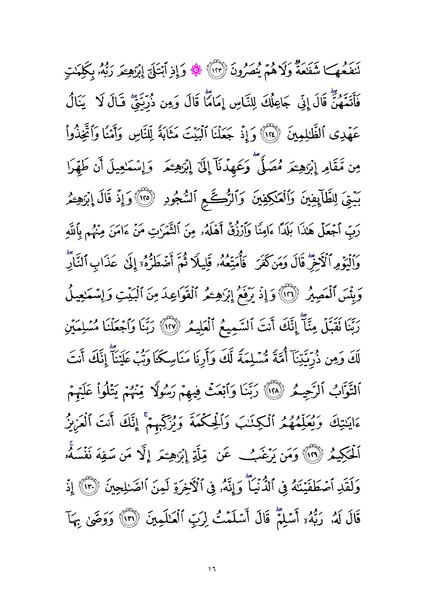 تَنفَعُهَا شَفَٰعَةٌ وَلَا هُمْ يُنصَرُونَ ١٢٣ ۞ وَإِذِ ٱبْتَلَىٰٓ إِبْرَٰهِـۧمَ رَبُّهُۥ بِكَلِمَٰتٍ
فَأَتَمَّهُنَّ ۖ قَالَ إِنِّى جَاعِلُكَ لِلنَّاسِ إِمَامًا ۖ قَالَ وَمِن ذُرِّيَّتِى ۖ قَالَ لَا يَنَالُ
عَهْدِى ٱلظَّٰلِمِينَ ١٢٤ وَإِذْ جَعَلْنَا ٱلْبَيْتَ مَثَابَةً لِّلنَّاسِ وَأَمْنًا وَٱتَّخِذُوا۟
مِن مَّقَامِ إِبْرَٰهِـۧمَ مُصَلًّى ۖ وَعَهِدْنَآ إِلَىٰٓ إِبْرَٰهِـۧمَ وَإِسْمَٰعِيلَ أَن طَهِّرَا
بَيْتِىَ لِلطَّآئِفِينَ وَٱلْعَٰكِفِينَ وَٱلرُّكَّعِ ٱلسُّجُودِ ١٢٥ وَإِذْ قَالَ إِبْرَٰهِـۧمُ
رَبِّ ٱجْعَلْ هَٰذَا بَلَدًا ءَامِنًا وَٱرْزُقْ أَهْلَهُۥ مِنَ ٱلثَّمَرَٰتِ مَنْ ءَامَنَ مِنْهُم بِٱللَّهِ
وَٱلْيَوْمِ ٱلْءَاخِرِ ۖ قَالَ وَمَن كَفَرَ فَأُمَتِّعُهُۥ قَلِيلًا ثُمَّ أَضْطَرُّهُۥٓ إِلَىٰ عَذَابِ ٱلنَّارِ ۖ
وَبِئْسَ ٱلْمَصِيرُ ١٢٦ وَإِذْ يَرْفَعُ إِبْرَٰهِـۧمُ ٱلْقَوَاعِدَ مِنَ ٱلْبَيْتِ وَإِسْمَٰعِيلُ
رَبَّنَا تَقَبَّلْ مِنَّآ ۖ إِنَّكَ أَنتَ ٱلسَّمِيعُ ٱلْعَلِيمُ ١٢٧ رَبَّنَا وَٱجْعَلْنَا مُسْلِمَيْنِ
لَكَ وَمِن ذُرِّيَّتِنَآ أُمَّةً مُّسْلِمَةً لَّكَ وَأَرِنَا مَنَاسِكَنَا وَتُبْ عَلَيْنَآ ۖ إِنَّكَ أَنتَ
ٱلتَّوَّابُ ٱلرَّحِيمُ ١٢٨ رَبَّنَا وَٱبْعَثْ فِيهِمْ رَسُولًا مِّنْهُمْ يَتْلُوا۟ عَلَيْهِمْ
ءَايَٰتِكَ وَيُعَلِّمُهُمُ ٱلْكِتَٰبَ وَٱلْحِكْمَةَ وَيُزَكِّيهِمْ ۚ إِنَّكَ أَنتَ ٱلْعَزِيزُ
ٱلْحَكِيمُ ١٢٩ وَمَن يَرْغَبُ عَن مِّلَّةِ إِبْرَٰهِـۧمَ إِلَّا مَن سَفِهَ نَفْسَهُۥ ۚ
وَلَقَدِ ٱصْطَفَيْنَٰهُ فِى ٱلدُّنْيَا ۖ وَإِنَّهُۥ فِى ٱلْءَاخِرَةِ لَمِنَ ٱلصَّٰلِحِينَ ١٣٠ إِذْ
قَالَ لَهُۥ رَبُّهُۥٓ أَسْلِمْ ۖ قَالَ أَسْلَمْتُ لِرَبِّ ٱلْعَٰلَمِينَ ١٣١ وَوَصَّىٰ بِهَآ
١٦